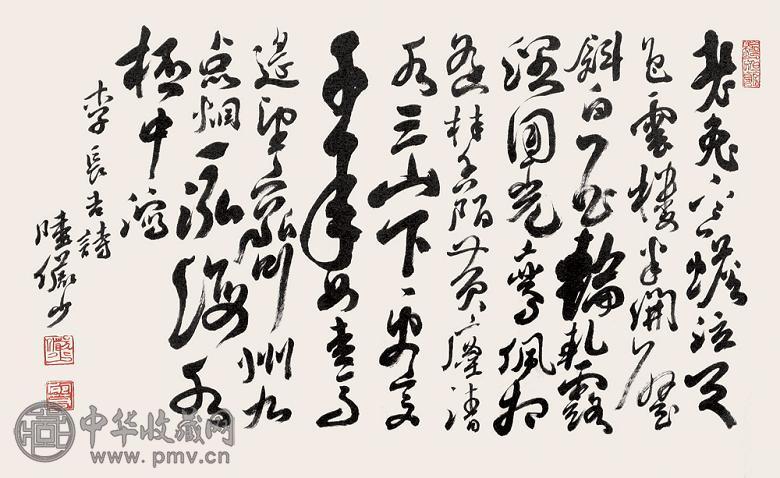 老兔寒蟾泣天
色雲樓半開壁
斜白玉輪軋露
濕團光鸞佩相
逢桂香陌黄塵清
水三山下更變
千年如走馬
遥望齊州九
点烟一泓海水
杯中瀉
李長吉詩
陸儼少
中华收藏网
www.pmv.cn